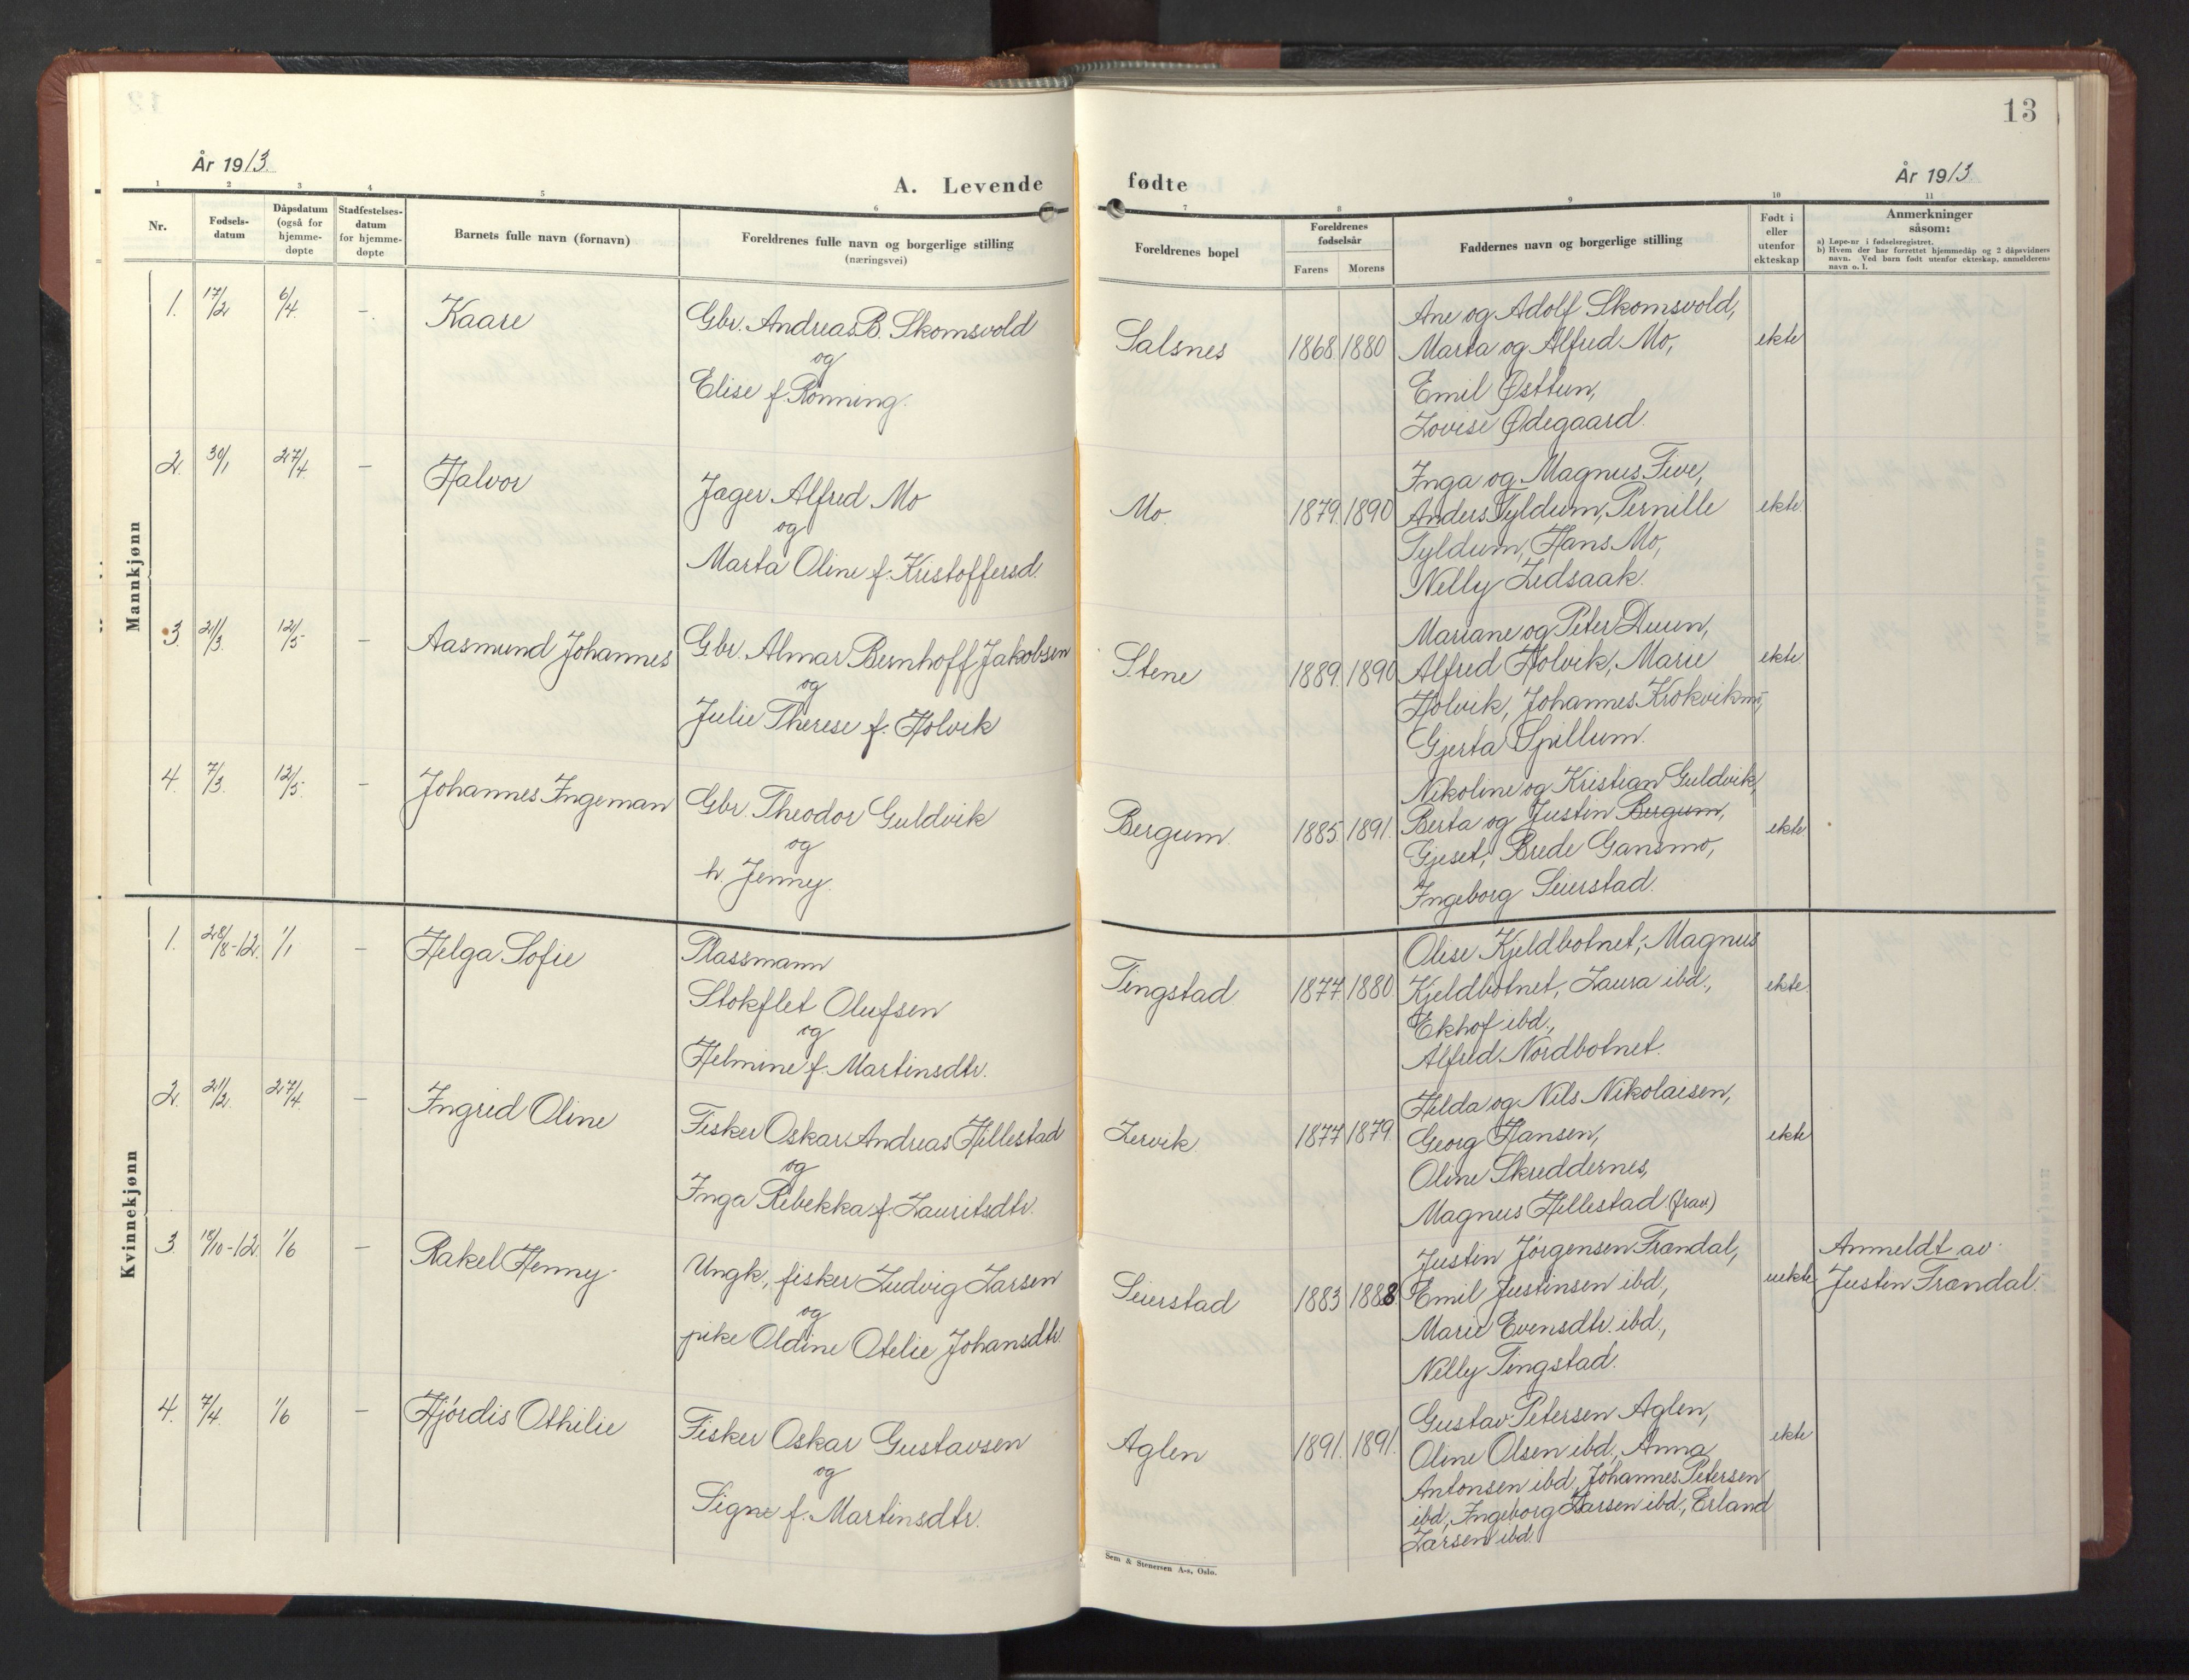 13
År 1913.
A. Levende
1 2 3 4 5 6
Nr.
Fødsels-
datum
Dåpsdatum
(også for
hjemme-
døpte
Stadfestelses-
datum
for hjemme-
døpte
Barnets fulle navn (fornavn)
Foreldrenes fulle navn og borgerlige stilling
(næringsvei)
Mannkjønn
1. 17/2 6/4. -. Kaare
Gbr. Andreas B. Skomsvold
og
Elise f. Rønning.
2. 30/1 27/4 - Halvor
Jager Alfred Mo
og
Marta Oline f. Kristoffersd.
3. 21/3. 12/5- - Aasmund Johannes
Gbr. Almar Bernhoff Jakobsen
og
Julie Therese f. Holvik
4. 7/3. 12/5- - Johannes Ingeman
Gbr. Theodor Guldvik
og
h. Jenny.
Kvinnekjønn
1. 28/8-12. 1/1 - Helga Sofie
Plassmann
Stokflet Olufsen
og
Helmine f. Martinsdtr.
2. 21/2. 27/4. - Ingrid Oline
Fisker Oskar Andreas Hillestad
og
Inga Rebekka f. Lauritsdtr.
3. 18/10-12. 1/6 - Rakel Henny
Ungk., fisker Ludvig Larsen
og
pike Oldine Otelie Johansdtr.
4. 7/4. 1/6 - Hjørdis Othilie
Fisker Oskar Gustavsen
og
Signe f. Martinsdtr.
fødte
År 1913
7 8 9 10 11
Foreldrenes bopel
Foreldrenes
fødselsår
Farens Morens
Faddernes navn og borgerlige stilling
Født i
eller
utenfor
ekteskap
Anmerkninger
såsom:
a) Løpe-nr i fødselsregistret.
b) Hvem der har forrettet hjemmedåp og 2 dåpsvidners
navn. Ved barn født utenfor ekteskap, anmelderens
navn o. l.
Salsnes 1868. 1880 ekte
Ane og Adolf Skomsvold,
Marta og Alfred Mo,
Emil Østtun,
Lovise Ødegaard.
Mo. 1879. 1890 ekte.
Inga og Magnus Five,
Anders Tyldum, Pernille
Tyldum, Hans Mo,
Nelly Ledsaak.
Stene 1889. 1890 ekte.
Mariane og Peter Duun,
Alfred Holvik, Marie
Holvik, Johannes Krokvikmo,
Gjerta Spillum.
Bergum. 1885. 1891. ekte
Nikoline og Kristian Guldvik,
Berta og Justin Bergum,
Gjeset, Brede Gansmo,
Ingeborg Seierstad.
Tingstad 1877. 1880 ekte.
Olise Kjeldbotnet, Magnus
Kjeldbotnet, Laura ibd.,
Ekhof ibd.,
Alfred Nordbotnet.
Lervik. 1877 1879. ekte
Hilda og Nils Nikolaisen,
Georg Hansen,
Oline Skreddernes,
Magnus Hillestad (frav)
Seierstad 1883 1888 uekte
Justin Jørgensen Trændal,
Emil Justinsen ibd.,
Marie Evensdtr. ibd.,
Nelly Tingstad.
Anmeldt av
Justin Trændal.
Aglen 1891. 1891. ekte
Gustav Petersen Aglen,
Oline Olsen ibd., Anna
Antonsen ibd., Johannes Petersen
ibd., Ingeborg Larsen ibd., Erland
Larsen ibd.
Sem & Stenersen A-s, Oslo.